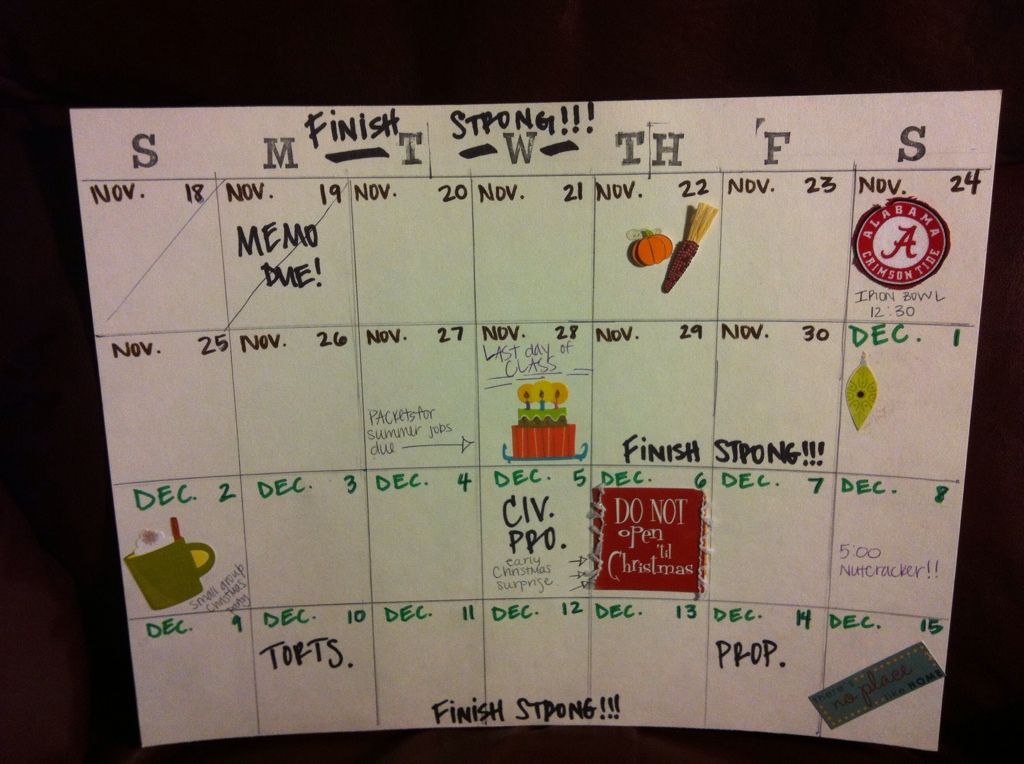 FINISH STRONG!!!
S M T W TH F S
NOV. 18 NOV. 19 NOV. 20 NOV. 21 NOV. 22 NOV. 23 NOV. 24
MEMO
DUE!
ALABAMA
A
CRIMSON TIDE
IRON BOWL
12:30
NOV. 25 NOV. 26 NOV. 27 NOV. 28 NOV. 29 NOV. 30 DEC. 1
PACKETS for
summer jobs
due
LAST day of
CLASS
FINISH STRONG!!!
DEC. 2 DEC. 3 DEC. 4 DEC. 5 DEC. 6 DEC. 7 DEC. 8
small group
Christmas
party
CIV.
PRO.
early
Christmas
surprise
DO NOT
open
'til
Christmas
5:00
Nutcracker!!
DEC. 9 DEC. 10 DEC. 11 DEC. 12 DEC. 13 DEC. 14 DEC. 15
TORTS.
PROP.
there's
no place
like HOME
FINISH STRONG!!!